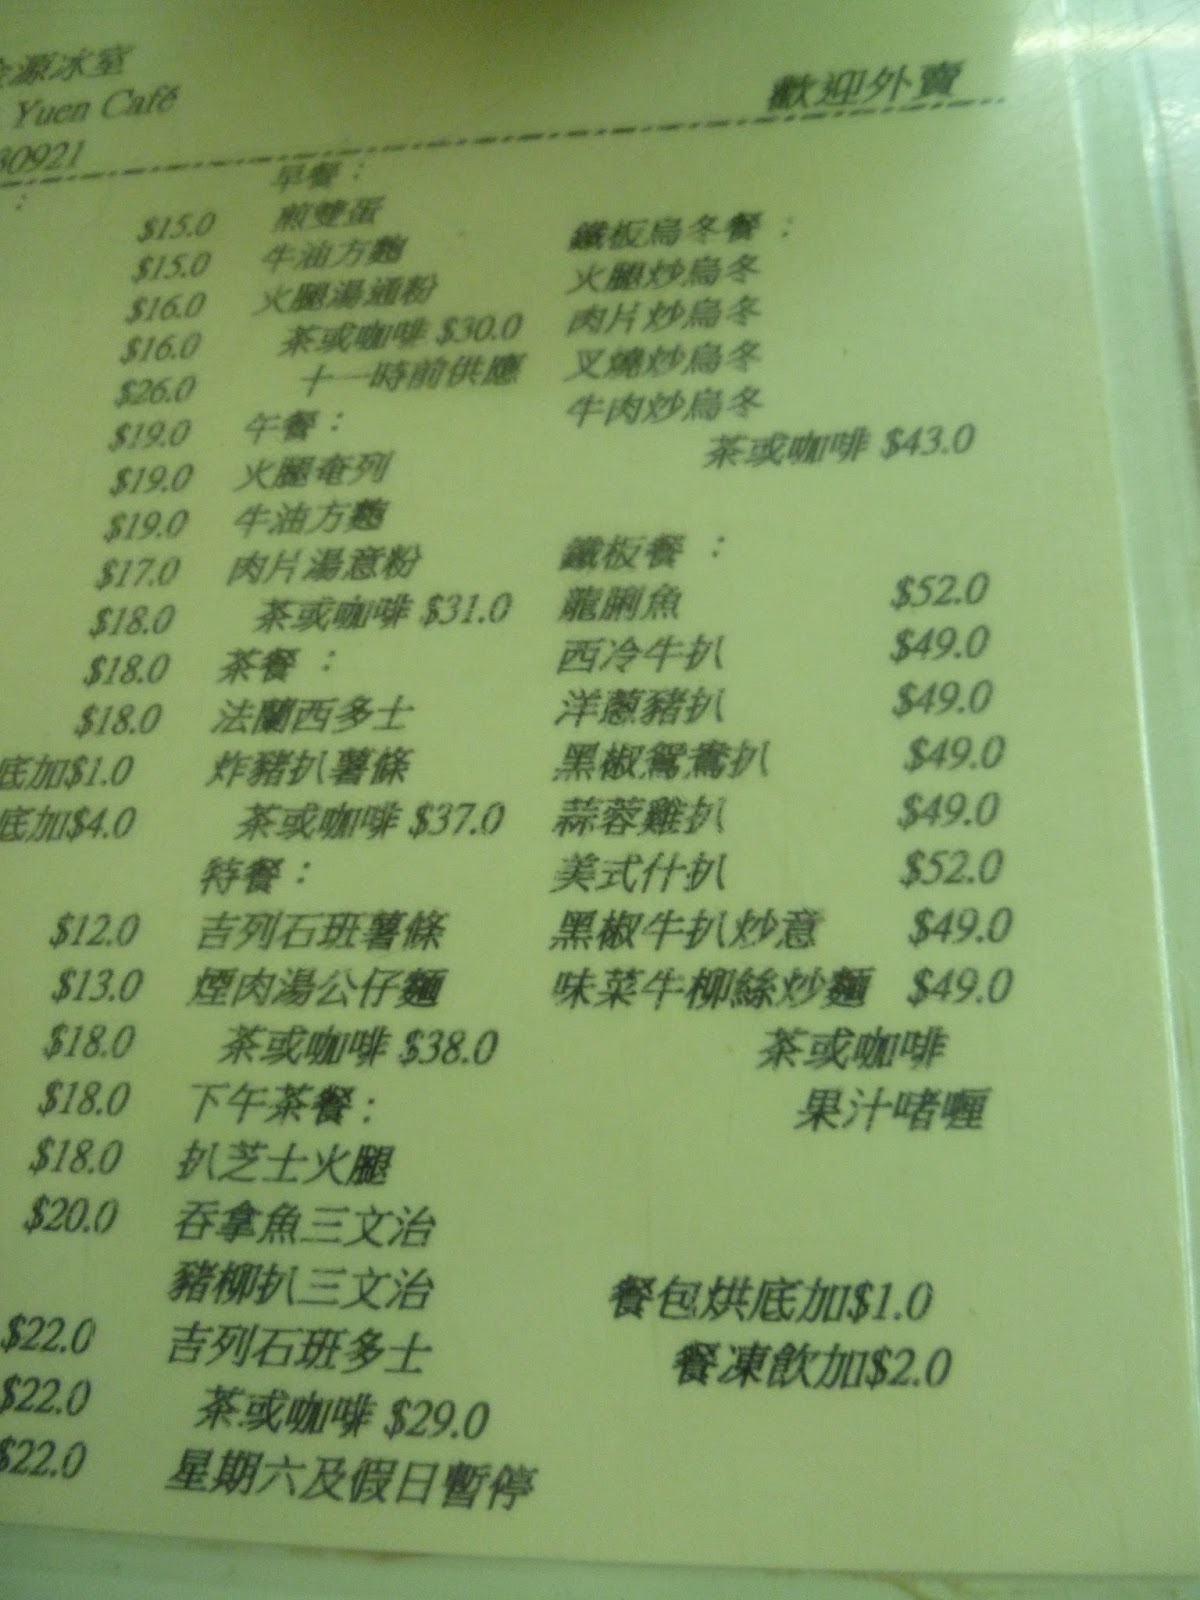 源冰室
Yuen Café
30921
歡迎外賣
:
$15.0
$15.0
$16.0
$16.0
$26.0
$19.0
$19.0
$19.0
$17.0
$18.0
$18.0
$18.0
底加$1.0
底加$4.0
$12.0
$13.0
$18.0
$18.0
$18.0
$20.0
$22.0
$22.0
$22.0
早餐：
煎雙蛋
牛油方麵
火腿湯通粉
茶或咖啡 $30.0
十一時前供應
午餐：
火腿奄列
牛油方麵
肉片湯意粉
茶或咖啡 $31.0
茶餐 ：
法蘭西多士
炸豬扒薯條
茶或咖啡 $37.0
特餐：
吉列石班薯條
煙肉湯公仔麵
茶或咖啡 $38.0
下午茶餐：
扒芝士火腿
吞拿魚三文治
豬柳扒三文治
吉列石班多士
茶或咖啡 $29.0
星期六及假日暫停
鐵板烏冬餐：
火腿炒烏冬
肉片炒烏冬
叉燒炒烏冬
牛肉炒烏冬
茶或咖啡 $43.0
鐵板餐 ：
龍脷魚 $52.0
西冷牛扒 $49.0
洋蔥豬扒 $49.0
黑椒鴛鴦扒 $49.0
蒜蓉雞扒 $49.0
美式什扒 $52.0
黑椒牛扒炒意 $49.0
味菜牛柳絲炒麵 $49.0
茶或咖啡
果汁啫喱
餐包烘底加$1.0
餐凍飲加$2.0